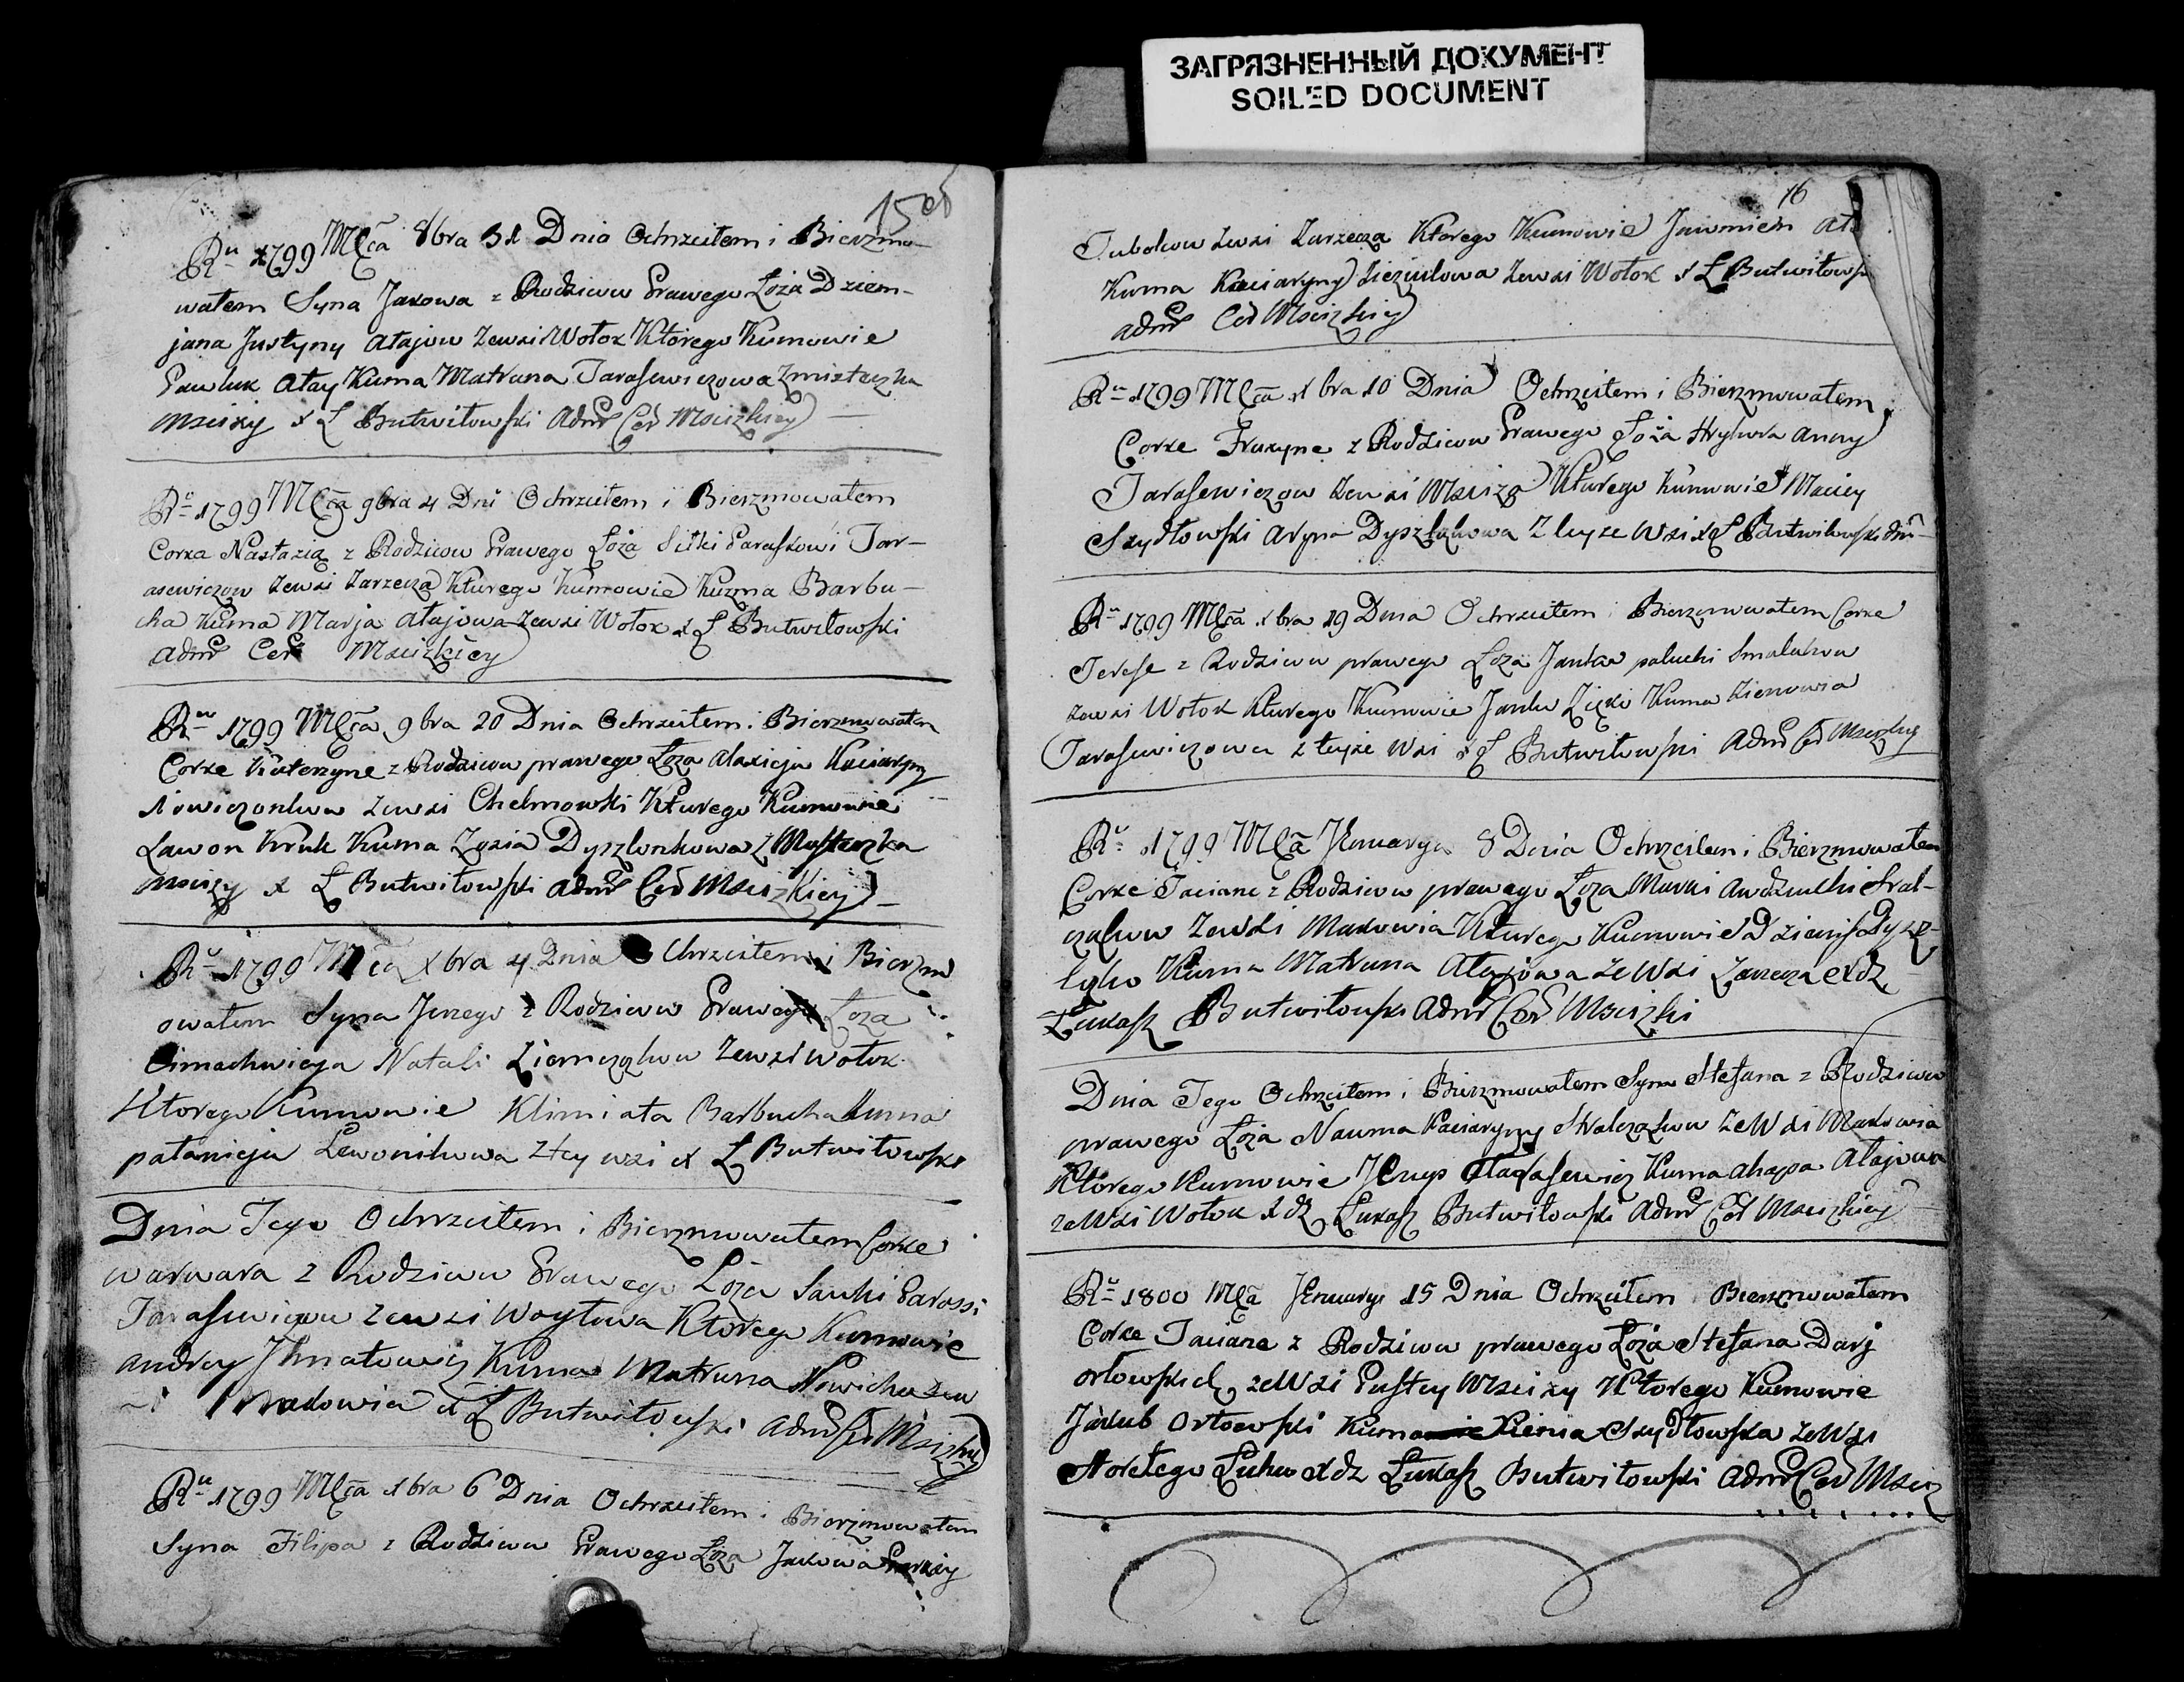 ЗАГРЯЗНЕННЫЙ ДОКУМЕНТ
SOILED DOCUMENT
15об
Ru 1799 Mca 8bra 31 Dnia Ochrzciłem i Bierzmo-
wałem Syna Jakowa z Rodzicow Prawego Łoża Dziem-
jana Justyny Ałajow zewsi Wołok Ktorego Kumowie
Pawluk Ałay Kuma Matruna Tarasewiczowa Zmisteczka
Mscizy X Ł Butwiłowski Admr Cer Mscizkiey
Ru 1799 Mca 9bra 4 Dni Ochrzciłem i Bierzmowałem
Corka Nastazią z Rodzicow Prawego Łoża Sitki Paraskowi Tar-
asewiczow zewsi Zarzecza Kturego Kumowie Kuzma Barbu-
cha Kuma Marja Ałajowa zewsi Wołok X Ł Butwiłowski
Admr Cer Mscizkiey
Ru 1799 Mca 9bra 20 Dnia Ochrzciłem i Bierzmowałem
Corke Katerzyne z Rodzicow prawego Łoża Alaxieja Kaciaryny
zewsi Chelmowski Kturego Kumowie
Lawon Kruk Kuma Zosia Dyszlonkowa z Mysteczka
Mscizy X Ł Butwiłowski Admr Cer Mscizkiey
Ru 1799 Mca Xbra 4 Dnia Ochrzciłem i Bierzm
owałem Syna Jerzego z Rodzicow Prawego Łoża
Cimachwieja Natali Ziemczokow zewsi Wołok
Ktorego Kumowie Klimiata Barbucha Kuma
pałanieja Lewonikowa z tey wsi X Ł Butwiłowski
Dnia Tego Ochrzciłem i Bierzmowałem Corke
warwara z Rodzicow Prawego Łoża Sawki Parassi
Tarasewiczow zewsi Woytowa Ktorego Kumowie
Andrey Ihnatowicz Kuma Matruna Nowichu zew
si Makowia X Ł Butwiłowski Admr Cer Mscizkiey
Ru 1799 Mca Xbra 6 Dnia Ochrzciłem i Bierzmowałem
Syna Filipa z Rodzicow Prawego Łoża Jakowa
16
zewsi Zarzecza Ktorego Kumowie
Kuma Kaciaryny zewsi Wołok X Ł Butwiłowski
Admr Cer Mscizkiey
Ru 1799 Mca Xbra 10 Dnia Ochrzciłem i Bierzmowałem
Corke Fruzyne z Rodzicow Prawego Łoża Hryhora Anny
Tarasewiczow zewsi Msciza Kturego Kumowie Maciey
Szydłowski Aryna Dyszlukowa z teyze Wsi X Ł Butwiłowski
Ru 1799 Mca Xbra 19 Dnia Ochrzciłem i Bierzmowałem Corke
Terese z Rodzicow prawego Łoża Janka paluchi Smalukow
zewsi Wołok Kturego Kumowie Janku Kuma Ziemowia
Tarasewiczowa z teyże Wsi X Ł Butwiłowski Admr Cer Mscizkiey
Ru 1799 Mca Jenuarya 8 Dnia Ochrzciłem i Bierzmowałem
Corke Taciane z Rodzicow prawego Łoża Marki Awdziuchi Stral-
czukow Zewsi Makowia Kturego Kumowie Dzienis Dysz-
lyko Kuma Matruna Ałajowa ze Wsi Zarzecza Xdz
Łukasz Butwiłowski Admr Cer Mscizki
Dnia Tego Ochrzciłem i Bierzmowałem Syna Stefana z Rodzicow
prawego Łoża Nauma Kaciaryny Stralczukow ze Wsi Makowia
Ktorego Kumowie Jezup Tarasewicz Kuma Ahapa Ałajowa
ze Wsi Wołok Xdz Łukasz Butwiłowski Admr Cer Mscizkiey
Ru 1800 Mca Jenuary 15 Dnia Ochrzciłem Bierzmowałem
Corke Taciane z Rodzicow prawego Łoża Stefana Darj
orłowskich zeWsi Pustey Mscizy Ktorego Kumowie
Jakub Orłowski Kuma Xienia Szydłowska zeWsi
Horełego Luhu Xdz Łukasz Butwiłowski Admr Cer Msciz